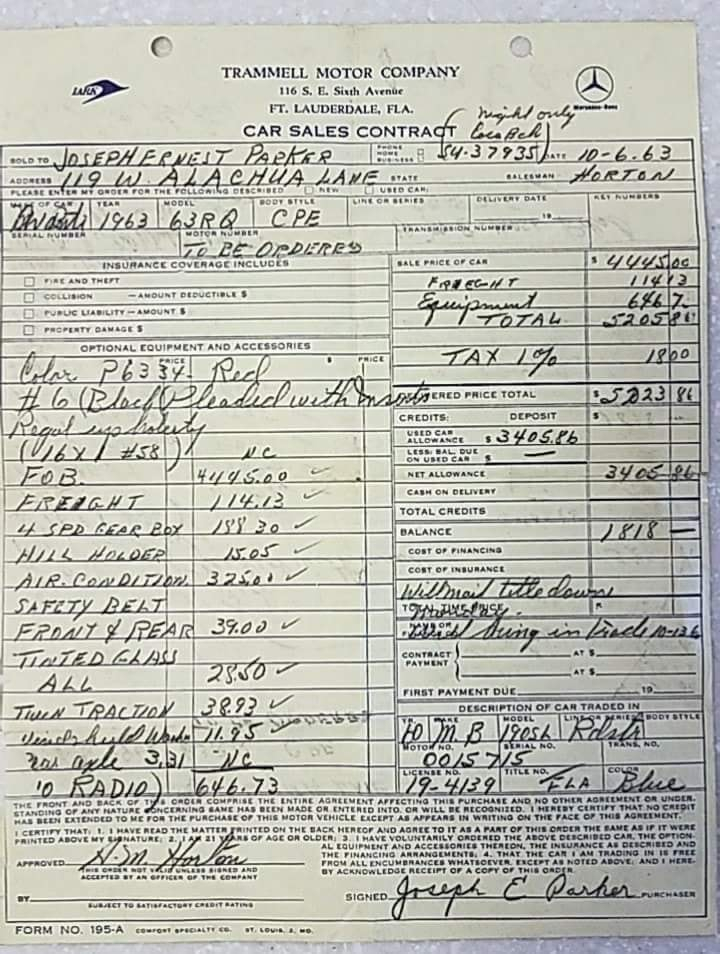 LARK
TRAMMELL MOTOR COMPANY
116 S. E. Sixth Avenue
FT. LAUDERDALE, FLA.
Mercedes-Benz
CAR SALES CONTRACT
Night only
Coco Bch
SOLD TO JOSEPH ERNEST PARKER PHONE HOME BUSINESS SU-37935 DATE 10-6.63
ADDRESS 119 W. ALACHUA LANE STATE SALESMAN HORTON
PLEASE ENTER MY ORDER FOR THE FOLLOWING DESCRIBED NEW USED CAR:
MAKE OF CAR YEAR MODEL BODY STYLE LINE OR SERIES DELIVERY DATE KEY NUMBERS
Avanti 1963 63RQ CPE 19
SERIAL NUMBER MOTOR NUMBER TRANSMISSION NUMBER
TO BE ORDERED
INSURANCE COVERAGE INCLUDES
FIRE AND THEFT
COLLISION — AMOUNT DEDUCTIBLE $
PUBLIC LIABILITY — AMOUNT $
PROPERTY DAMAGE $
OPTIONAL EQUIPMENT AND ACCESSORIES
PRICE $ PRICE
Color P6334 Red
#6 (Black) Pleaded with Inserts
Regal upholsty
(U16X1 #58) NC
FOB. 4445.00 ✓
FREIGHT 114.13 ✓
4 SPD GEAR BOX 188 30 ✓
HILL HOLDER 15.05 ✓
AIR. CONDITION. 325.00 ✓
SAFETY BELT
FRONT & REAR 39.00 ✓
TINTED GLASS
ALL 28.50 ✓
TWIN TRACTION 38.93 ✓
Windshield Washer 11.95 ✓
rear axle 3.31 NC
'O RADIO) 646.73
SALE PRICE OF CAR $ 4445 00
FREIGHT 114 13
Equipment 646 7
TOTAL 5205 86
TAX 1% 18 00
DELIVERED PRICE TOTAL $ 5223 86
CREDITS: DEPOSIT $
USED CAR ALLOWANCE $ 3405.86
LESS: BAL. DUE ON USED CAR $ —
NET ALLOWANCE 3405 86
CASH ON DELIVERY
TOTAL CREDITS
BALANCE 1818 —
COST OF FINANCING
COST OF INSURANCE
Will mail title down
TOTAL TIME PRICE
Monday.
bring in trade 10-13 6
CONTRACT PAYMENT AT $
AT $
FIRST PAYMENT DUE 19
DESCRIPTION OF CAR TRADED IN
YR. MAKE MODEL LINE OR SERIES BODY STYLE
60 M B 190SL Rdstr
MOTOR NO. SERIAL NO. TRANS. NO.
0015715
LICENSE NO. TITLE NO. COLOR
19-4139 FLA Blue
THE FRONT AND BACK OF THIS ORDER COMPRISE THE ENTIRE AGREEMENT AFFECTING THIS PURCHASE AND NO OTHER AGREEMENT OR UNDERSTANDING OF ANY NATURE CONCERNING SAME HAS BEEN MADE OR ENTERED INTO, OR WILL BE RECOGNIZED. I HEREBY CERTIFY THAT NO CREDIT
HAS BEEN EXTENDED TO ME FOR THE PURCHASE OF THIS MOTOR VEHICLE EXCEPT AS APPEARS IN WRITING ON THE FACE OF THIS AGREEMENT.
I CERTIFY THAT: 1. I HAVE READ THE MATTER PRINTED ON THE BACK HEREOF AND AGREE TO IT AS A PART OF THIS ORDER THE SAME AS IF IT WERE
PRINTED ABOVE MY SIGNATURE; 2. I AM 21 YEARS OF AGE OR OLDER; 3. I HAVE VOLUNTARILY ORDERED THE ABOVE DESCRIBED CAR, THE OPTIONAL EQUIPMENT AND ACCESSORIES THEREON, THE INSURANCE AS DESCRIBED AND
THE FINANCING ARRANGEMENTS; 4. THAT THE CAR I AM TRADING IN IS FREE
FROM ALL ENCUMBRANCES WHATSOEVER, EXCEPT AS NOTED ABOVE; AND I HEREBY ACKNOWLEDGE RECEIPT OF A COPY OF THIS ORDER.
APPROVED H.M. Horton
THIS ORDER NOT VALID UNLESS SIGNED AND
ACCEPTED BY AN OFFICER OF THE COMPANY
BY
SUBJECT TO SATISFACTORY CREDIT RATING
SIGNED Joseph E Parker PURCHASER
FORM NO. 195-A COMFORT SPECIALTY CO. ST. LOUIS, 2, MO.